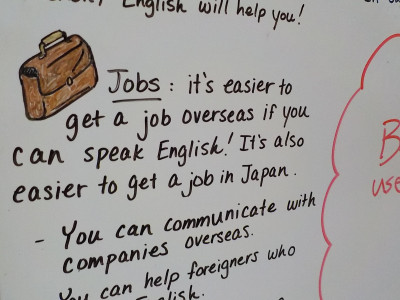 English will help you!
Jobs: it's easier to
get a job overseas if you
can speak English! It's also
easier to get a job in Japan.
- You can communicate with
companies overseas.
You can help foreigners who
English.
B
use